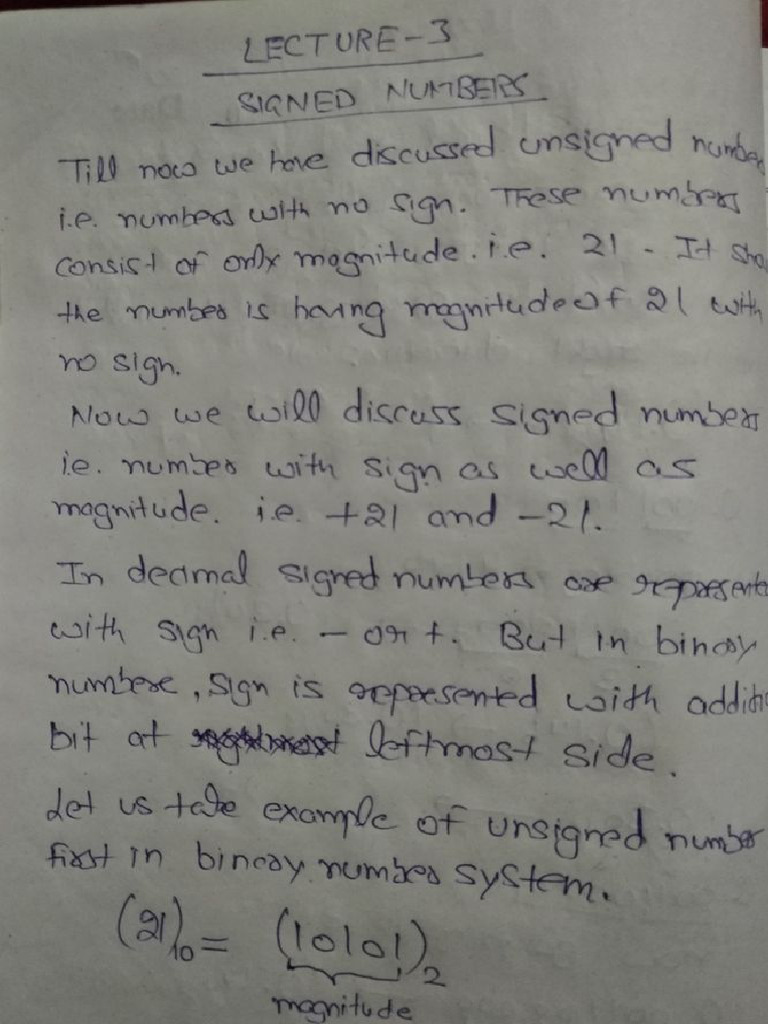 LECTURE-3
SIGNED NUMBERS
Till now we have discussed unsigned number
i.e. numbers with no sign. These numbers
consist of only magnitude. i.e. 21 - It sho
the number is having magnitude of 21 with
no sign.
Now we will discuss signed numbers
i.e. number with sign as well as
magnitude. i.e. +21 and -21.
In decimal signed numbers are represente
with sign i.e. - or +. But in binary
number, sign is represented with additio
bit at leftmost side.
Let us take example of unsigned number
first in binary number system.
(21)10 = (10101)2
magnitude